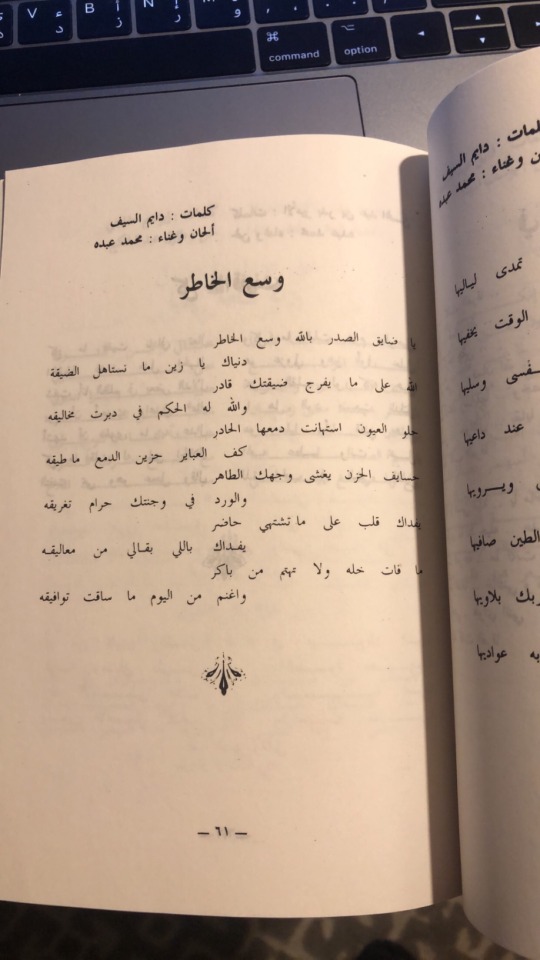 كلمات : دايم السيف
ألحان وغناء : محمد عبده
وسع الخاطر
يا ضايق الصدر بالله وسع الخاطر
دنياك يا زين ما تستاهل الضيقة
الله على ما يفرج ضيقتك قادر
والله له الحكم في دبرت مخاليقه
حلو العيون استهانت دمعها الحادر
كف العباير حزين الدمع ما طيقه
حسايف الحزن يغشى وجهك الطاهر
والورد في وجنتك حرام تغريقه
يفداك قلب على ما تشتهي حاضر
يفداك باللي بقالي من معاليقه
ما فات خله ولا تهتم من باكر
واغنم من اليوم ما ساقت توافيقه
— ٦١ —
كلمات : دايم السيف
وغناء : محمد عبده
تمدى لياليها
الوقت يخفيها
وسليها
عند داعيها
ويرويها
الطين صافيها
بلاويها
عواديها
command
option